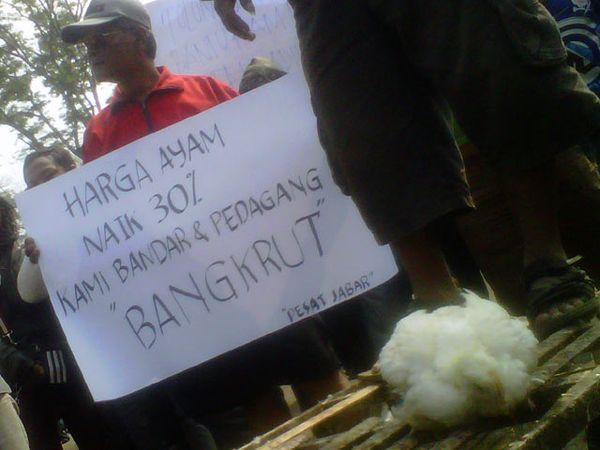 HARGA AYAM
NAIK 30%
KAMI BANDAR & PEDAGANG
"BANGKRUT"
"PESAT JABAR"